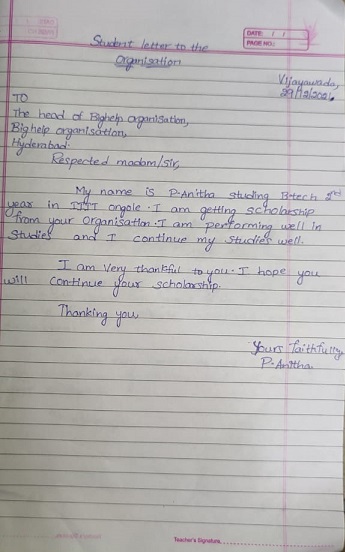 DATE: / /
PAGE NO.:
Student letter to the
Organisation
Vijayawada,
TO
The head of Bighelp organisation,
Bighelp organisation,
Hyderabad.
Respected madam/sir,
My name is P.Anitha studing B.tech 2nd
year in IIIT ongole. I am getting scholarship
from your Organisation. I am performing well in
Studies and I continue my studies well.
I am very thankful to you. I hope you
will continue your scholarship.
Thanking you
Yours faithfully,
P.Anitha
Teacher's Signature